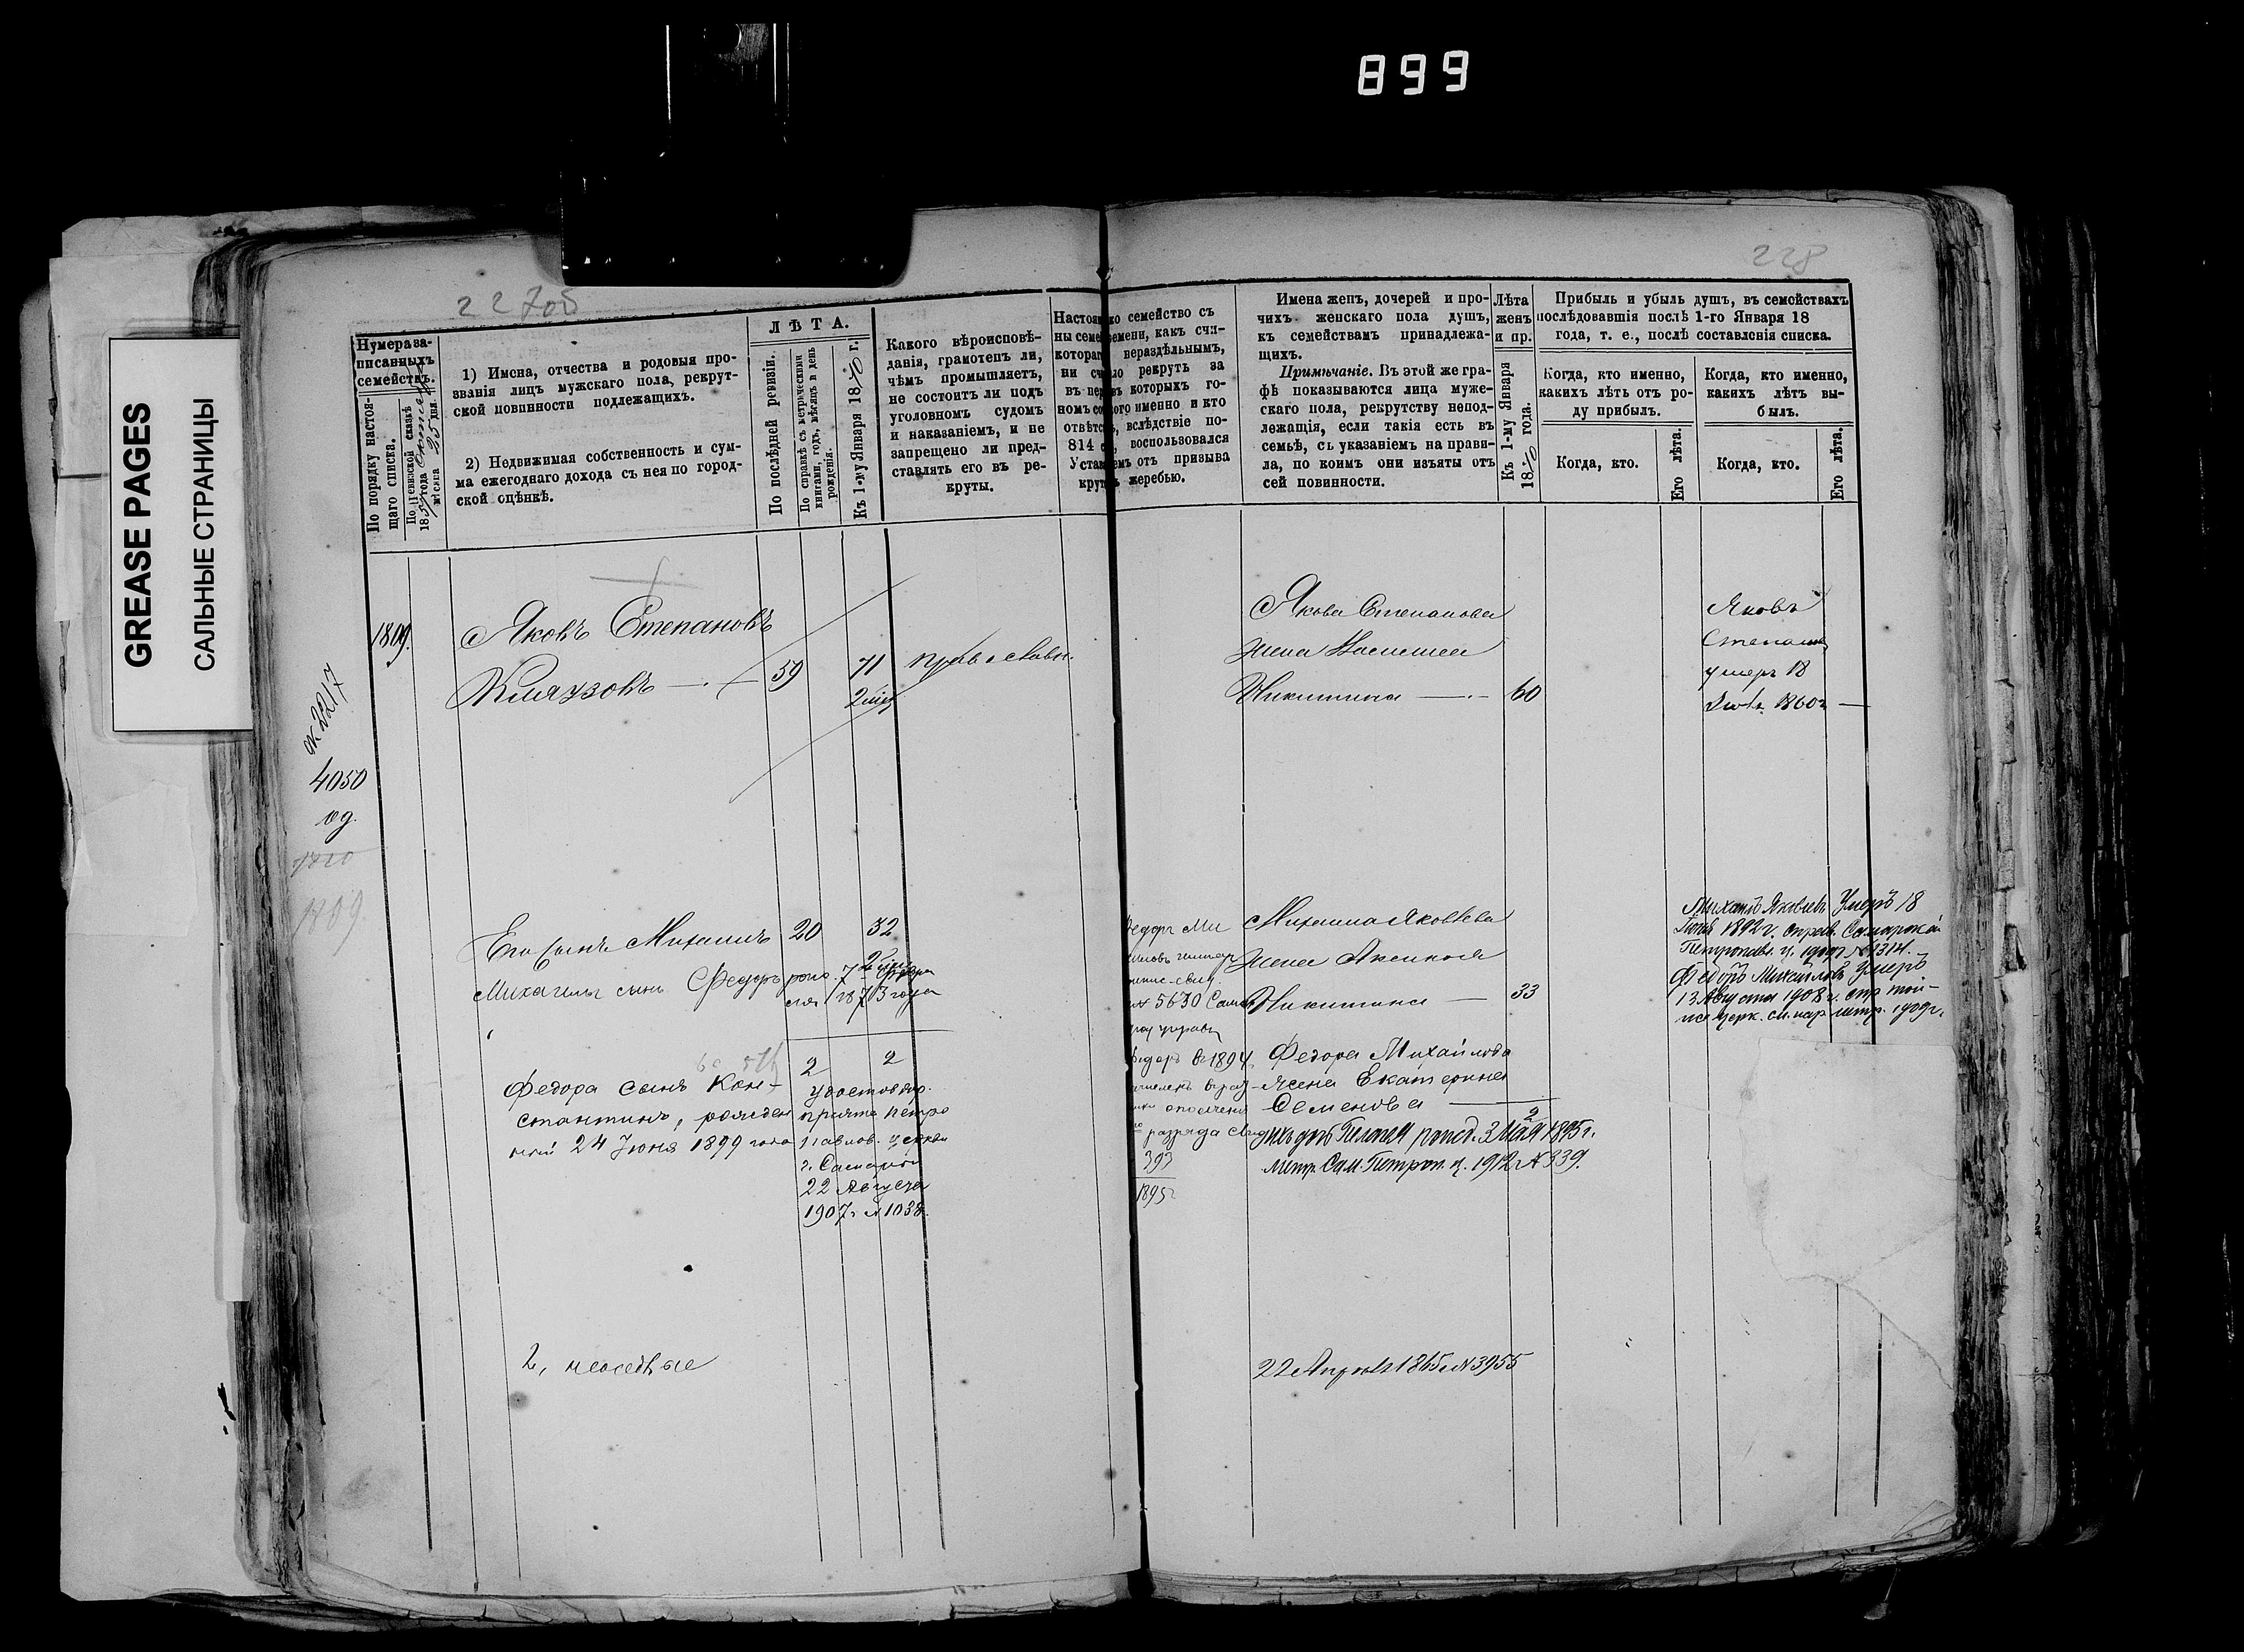 899
GREASE PAGES
САЛЬНЫЕ СТРАНИЦЫ
227об
228
Нумера за-
писанныхъ
семействъ.
По порядку настоя-
щаго списка.
По ревизской сказкѣ
18 года
мѣсяца 25 дня.
1) Имена, отчества и родовыя про-
званія лицъ мужскаго пола, рекрут-
ской повинности подлежащихъ.
2) Недвижимая собственность и сум-
ма ежегоднаго дохода съ нея по город-
ской оцѣнкѣ.
ЛѢТА.
По послѣдней ревизіи.
По справкѣ съ метрическими
книгами, годъ, мѣсяцъ и день
рожденія.
Къ 1-му Января 1870 г.
Какого вѣроисповѣ-
данія, грамотенъ ли,
чѣмъ промышляетъ,
не состоитъ ли подъ
уголовномъ судомъ
и наказаніемъ, и не
запрещено ли пред-
ставлять его въ ре-
круты.
Настоя ко семейство съ
ны семе емени, какъ счи-
котораго нераздѣльнымъ,
ни число рекрутъ за
въ пер въ которыхъ го-
номъ со ого именно и кто
отвѣтс , вслѣдствіе по-
814 с , воспользовался
Уста емъ отъ призыва
крут ъ жеребью.
Имена женъ, дочерей и про-
чихъ женскаго пола душъ,
къ семействамъ принадлежа-
щихъ.
Примѣчаніе. Въ этой же гра-
фѣ показываются лица муже-
скаго пола, рекрутству непод-
лежащія, если такія есть въ
семьѣ, съ указаніемъ на прави-
ла, по коимъ они изъяты отъ
сей повинности.
Лѣта
женъ
и пр.
Къ 1-му Января
1870 года.
Прибыль и убыль душъ, въ семействахъ
послѣдовавшія послѣ 1-го Января 18
года, т. е., послѣ составленія списка.
Когда, кто именно,
какихъ лѣтъ отъ ро-
ду прибылъ.
Когда, кто именно,
какихъ лѣтъ вы-
былъ.
Когда, кто.
Его лѣта.
Когда, кто.
Его лѣта.
1809.
Яковъ Степановъ
Кляузовъ — 59 71 православн.
Якова Степанова
жена
Никитина — 60
Яковъ
Степанов
умеръ 18
1860г —
№ 2217
4050
1809
Его Сынъ Михаилъ 20 32
Михаила сынъ Федоръ рожд. 7
1873 года
Федоръ Ми
5630
Михаила Яковлева
жена Аксинья
Никитина — 33
Михаилъ Яковлевъ Умеръ 18
1892 г. справ. Самарской
Петропавл. ц. 1909 г №1314.
Федоръ Михайловъ Умеръ
13 Августа 1908 г.
церк. метр. 1909г.
2 2
Федора сынъ Кон-
стантинъ, рожден
ный 24 Іюня 1899 года
удостовѣр.
причта Петро
павлов. церкви
г. Самары
22 Августа
1907 г № 1038.
Федоръ въ 1894
ополченія
разряда
393
1895г
Федора Михайлова
жена Екатерина
Семенова — 2
дочь Пелагея рожд. 3 Мая 1895 г.
метр. Сам. Петроп. ц. 1912 г № 339.
2,
22 Апрѣля 1865 г №3955